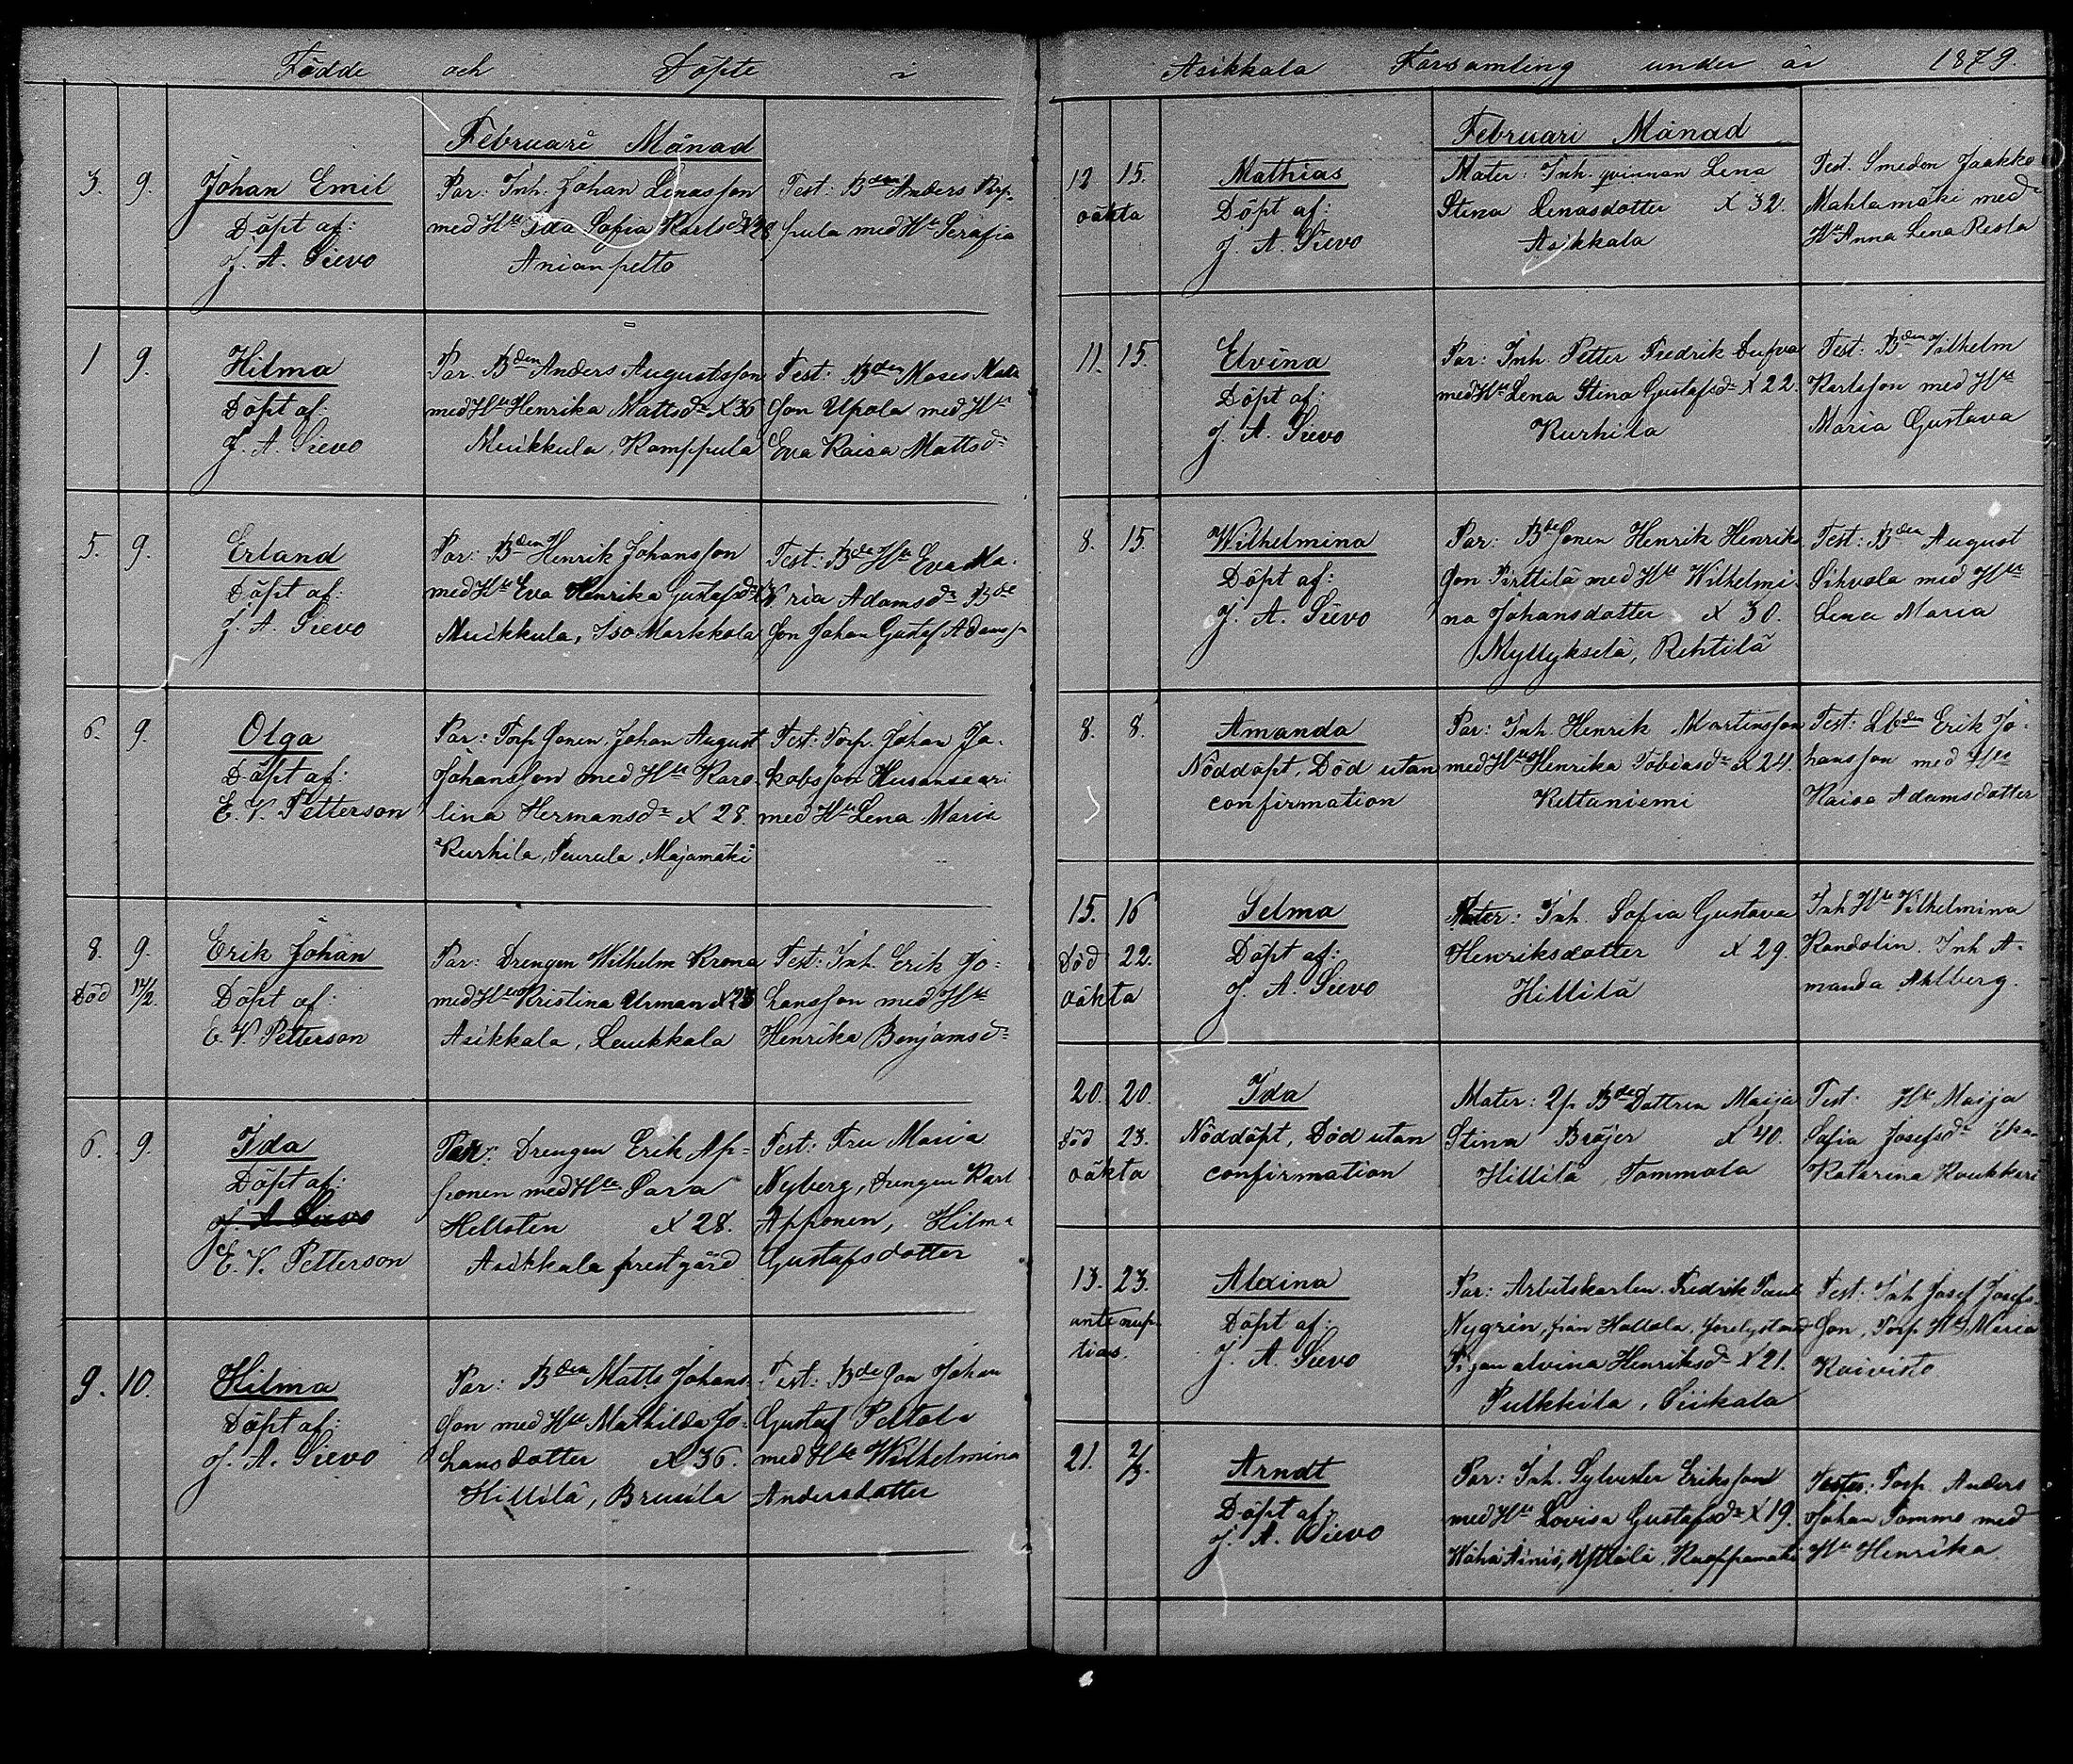 Födde och Döpte i
Februari Månad
3. 9. Johan Emil
Döpt af:
J. A. Sievo
Par: Inh. Johan Lenasson
med Hu Ida Sofia Karlsdr X 28
Anianpelto
Test: Bden Anders
pula med Hu Serafia
1 9. Hilma
Döpt af:
J. A. Sievo
Par. Bden Anders Augustsson
med Hu Henrika Mattsdr X 36
Muikkula, Kamppula
Test: Bden Moses Matts
son Upola med Hu
Eva Kaisa Mattsdr
5. 9. Erland
Döpt af:
J. A. Sievo
Par: Bden Henrik Johansson
med Hu Eva Henrika Gustafsdr
Muikkula, Iso Markkola
Test: Bde Hu Eva Ma-
ria Adamsdr Bde
son Johan Gustaf Adamss
6. 9. Olga
Döpt af:
E. V. Petterson
Par: Torp sonen Johan August
Johansson med Hu Karo-
lina Hermansdr X 28.
Kurhila, Seurula, Majamäki
Test: Torp. Johan Ja-
kobsson Husansaari
med Hu Lena Maria
8. 9. Erik Johan
Död 17/2. Döpt af:
E. V. Petterson
Par: Drengen Wilhelm Krona
med Hu Kristina Urman X 23
Asikkala, Laukkala
Test: Inh. Erik Jo-
hansson med Hu
Henrika Benjamsdr
6. 9. Ida
Döpt af:
J. A. Sievo
E. V. Petterson
Par: Drengen Erik Ap-
ponen med Hu Sara
Hellsten X 28.
Asikkala prestgård
Test: Fru Maria
Nyberg, Drengen Karl
Apponen, Hilma
Gustafsdotter
9. 10. Hilma
Döpt af:
J. A. Sievo
Par: Bden Matts Johans-
son med Hu Mathilda Jo-
hansdotter X 36.
Hillilä, Brusila
Test: Bde son Johan
Gustaf Peltola
med Hu Wilhelmina
Andersdotter
Asikkala Församling under år 1879.
Februari Månad
12 15. Mathias
oäkta Döpt af:
J. A. Sievo
Mater: Inh. qvinnan Lena
Stina Lenasdotter X 32.
Asikkala
Test. Smeden Jaakko
Mahlamäki med
Hu Anna Lena Resla
11. 15. Elvina
Döpt af:
J. A. Sievo
Par: Inh. Petter Fredrik Dufva
med Hu Lena Stina Gustafsdr X 22.
Kurhila
Test: Bden Vilhelm
Karlsson med Hu
Maria Gustava
8. 15. Wilhelmina
Döpt af:
J. A. Sievo
Par: Bde sonen Henrik Henriks
son Pirttilä med Hu Wilhelmi-
na Johansdotter X 30.
Myllykselä, Rehtilä
Test: Bden August
Sihvola med Hu
Lena Maria
8. 8. Amanda
Nöddöpt, Död utan
confirmation
Par: Inh. Henrik Martinsson
med Hu Henrika Tobiasdr X 24.
Keltaniemi
Test: Lbden Erik Jo-
hansson med Hu
Kaisa Adamsdotter
15. 16 Selma
Död 22. Döpt af:
oäkta J. A. Sievo
Mater: Inh. Sofia Gustava
Henriksdotter X 29.
Hillilä
Inh Hu Vilhelmina
Randolin. Inh A-
manda Ahlberg.
20. 20. Ida
Död 23. Nöddöpt, Död utan
oäkta confirmation
Mater: Bde Dottren Maija
Stina Bröjer X 40.
Hillilä, Tommola
Test: Hu Maija
Sofia Josefsdr
Katarina Roukkari
13. 23. Alexina
ante nup- Döpt af:
tias. J. A. Sievo
Par: Arbetskarlen Fredrik
Nygrin, från Hollola,
Pigan alvina Henriksdr X 21.
Pulkkila, Siikala
Test: Inh Josef Josefs-
son, Torp. Hu Maria
Koivisto
21. 2/3. Arndt
Döpt af:
J. A. Sievo
Par: Inh. Sylvester Eriksson
med Hu Lovisa Gustafsdr X 19.
Wähä Äiniö,
Testes: Torp. Anders
Johan Tommo med
Hu Henrika